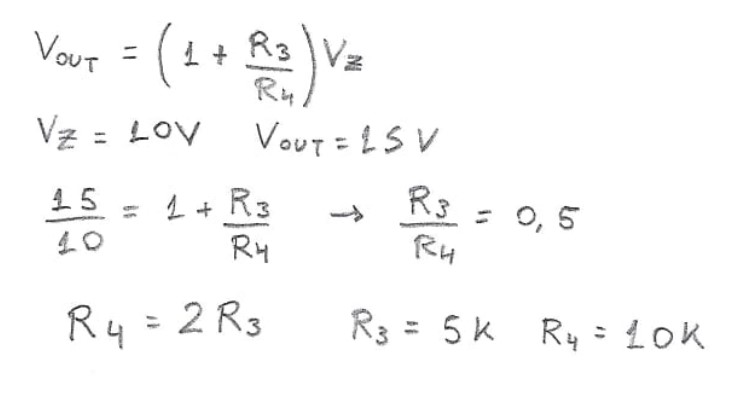 V_OUT = (1 + R3/R4) Vz
Vz = 10V V_OUT = 15V
15/10 = 1 + R3/R4 → R3/R4 = 0,5
R4 = 2R3 R3 = 5K R4 = 10K